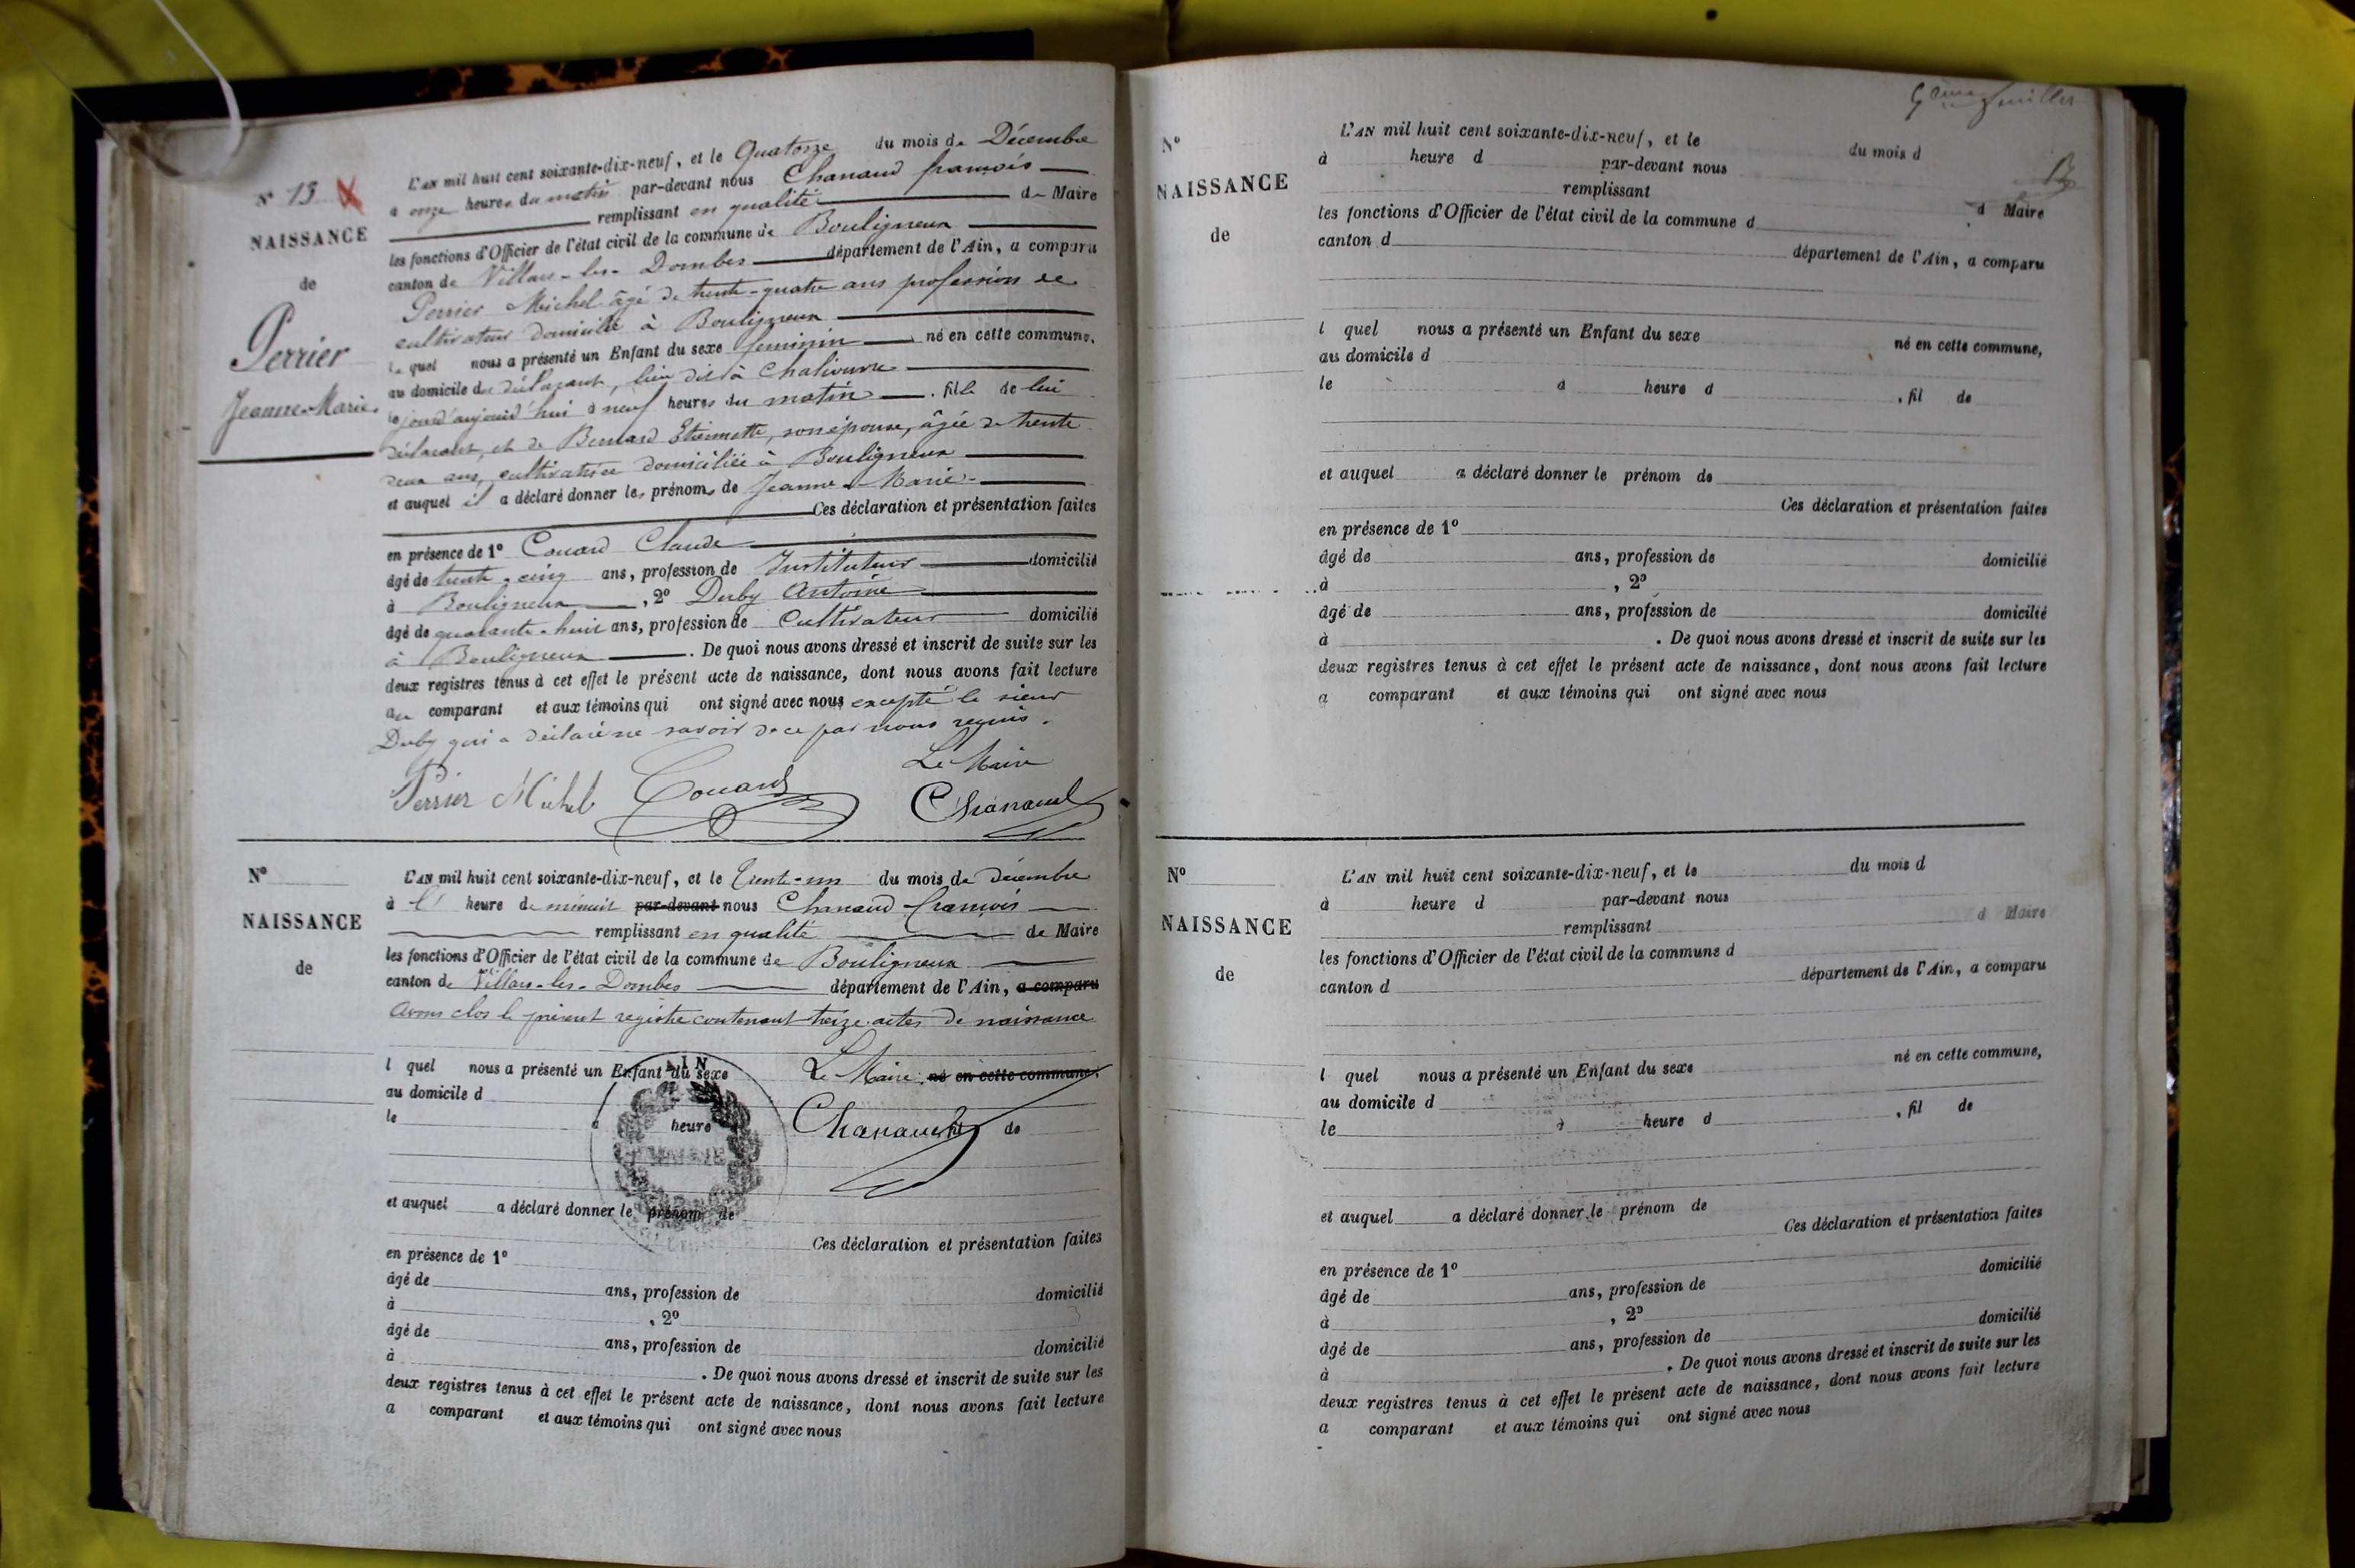 N° 13
NAISSANCE
de
Perrier
Jeanne-Marie.
L'AN mil huit cent soixante-dix-neuf, et le Quatorze du mois de Décembre
à onze heures du matin par-devant nous Chanaud françois
remplissant en qualité de Maire
les fonctions d'Officier de l'état civil de la commune de Bouligneux
canton de Villars-les-Dombes département de l'Ain, a comparu
Perrier Michel âgé de trente-quatre ans profession de
cultivateur domicilié à Bouligneux
lequel nous a présenté un Enfant du sexe feminin né en cette commune,
au domicile du déclarant, lieu dit à
le jourd'aujourd'hui à neuf heures du matin, fille de lui
déclarant, et de Bernard Etiennette, son épouse, âgée de trente
deux ans, cultivatrice domiciliée à Bouligneux
et auquel il a déclaré donner les prénoms de Jeanne-Marie.
Ces déclaration et présentation faites
en présence de 1° Couard Claude
âgé de trente-cinq ans, profession de Instituteur domicilié
à Bouligneux, 2° Duby Antoine
âgé de quarante-huit ans, profession de Cultivateur domicilié
à Bouligneux. De quoi nous avons dressé et inscrit de suite sur les
deux registres tenus à cet effet le présent acte de naissance, dont nous avons fait lecture
au comparant et aux témoins qui ont signé avec nous excepté le sieur
Duby qui a déclaré ne savoir de ce par nous requis.
Le Maire
Perrier Michel Couard Chanaud
N°
NAISSANCE
de
L'AN mil huit cent soixante-dix-neuf, et le trente-un du mois de décembre
à heure de minuit par-devant nous Chanaud françois
remplissant en qualité de Maire
les fonctions d'Officier de l'état civil de la commune de Bouligneux
canton de Villars-les-Dombes département de l'Ain, a comparu
Avons clos le présent registre contenant treize actes de naissance
l quel nous a présenté un Enfant du sexe Le Maire né en cette commune,
au domicile d
le à heure Chanaud de
et auquel a déclaré donner le prénom de
Ces déclaration et présentation faites
en présence de 1°
âgé de ans, profession de domicilié
à , 2°
âgé de ans, profession de domicilié
à . De quoi nous avons dressé et inscrit de suite sur les
deux registres tenus à cet effet le présent acte de naissance, dont nous avons fait lecture
a comparant et aux témoins qui ont signé avec nous
N°
NAISSANCE
de
L'AN mil huit cent soixante-dix-neuf, et le du mois d
à heure d par-devant nous
remplissant d Maire
les fonctions d'Officier de l'état civil de la commune d
canton d département de l'Ain, a comparu
l quel nous a présenté un Enfant du sexe né en cette commune,
au domicile d
le à heure d , fil de
et auquel a déclaré donner le prénom de
Ces déclaration et présentation faites
en présence de 1°
âgé de ans, profession de domicilié
à , 2°
âgé de ans, profession de domicilié
à . De quoi nous avons dressé et inscrit de suite sur les
deux registres tenus à cet effet le présent acte de naissance, dont nous avons fait lecture
a comparant et aux témoins qui ont signé avec nous
N°
NAISSANCE
de
L'AN mil huit cent soixante-dix-neuf, et le du mois d
à heure d par-devant nous
remplissant d Maire
les fonctions d'Officier de l'état civil de la commune d
canton d département de l'Ain, a comparu
l quel nous a présenté un Enfant du sexe né en cette commune,
au domicile d
le à heure d , fil de
et auquel a déclaré donner le prénom de
Ces déclaration et présentation faites
en présence de 1°
âgé de ans, profession de domicilié
à , 2°
âgé de ans, profession de domicilié
à . De quoi nous avons dressé et inscrit de suite sur les
deux registres tenus à cet effet le présent acte de naissance, dont nous avons fait lecture
a comparant et aux témoins qui ont signé avec nous